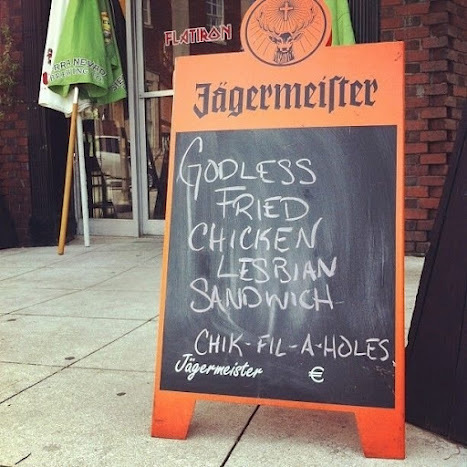 FLATIRON
SIERRA NEVADA
Jägermeister
GODLESS
FRIED
CHICKEN
LESBIAN
SANDWICH
CHIK-FIL-A-HOLES
Jägermeister €